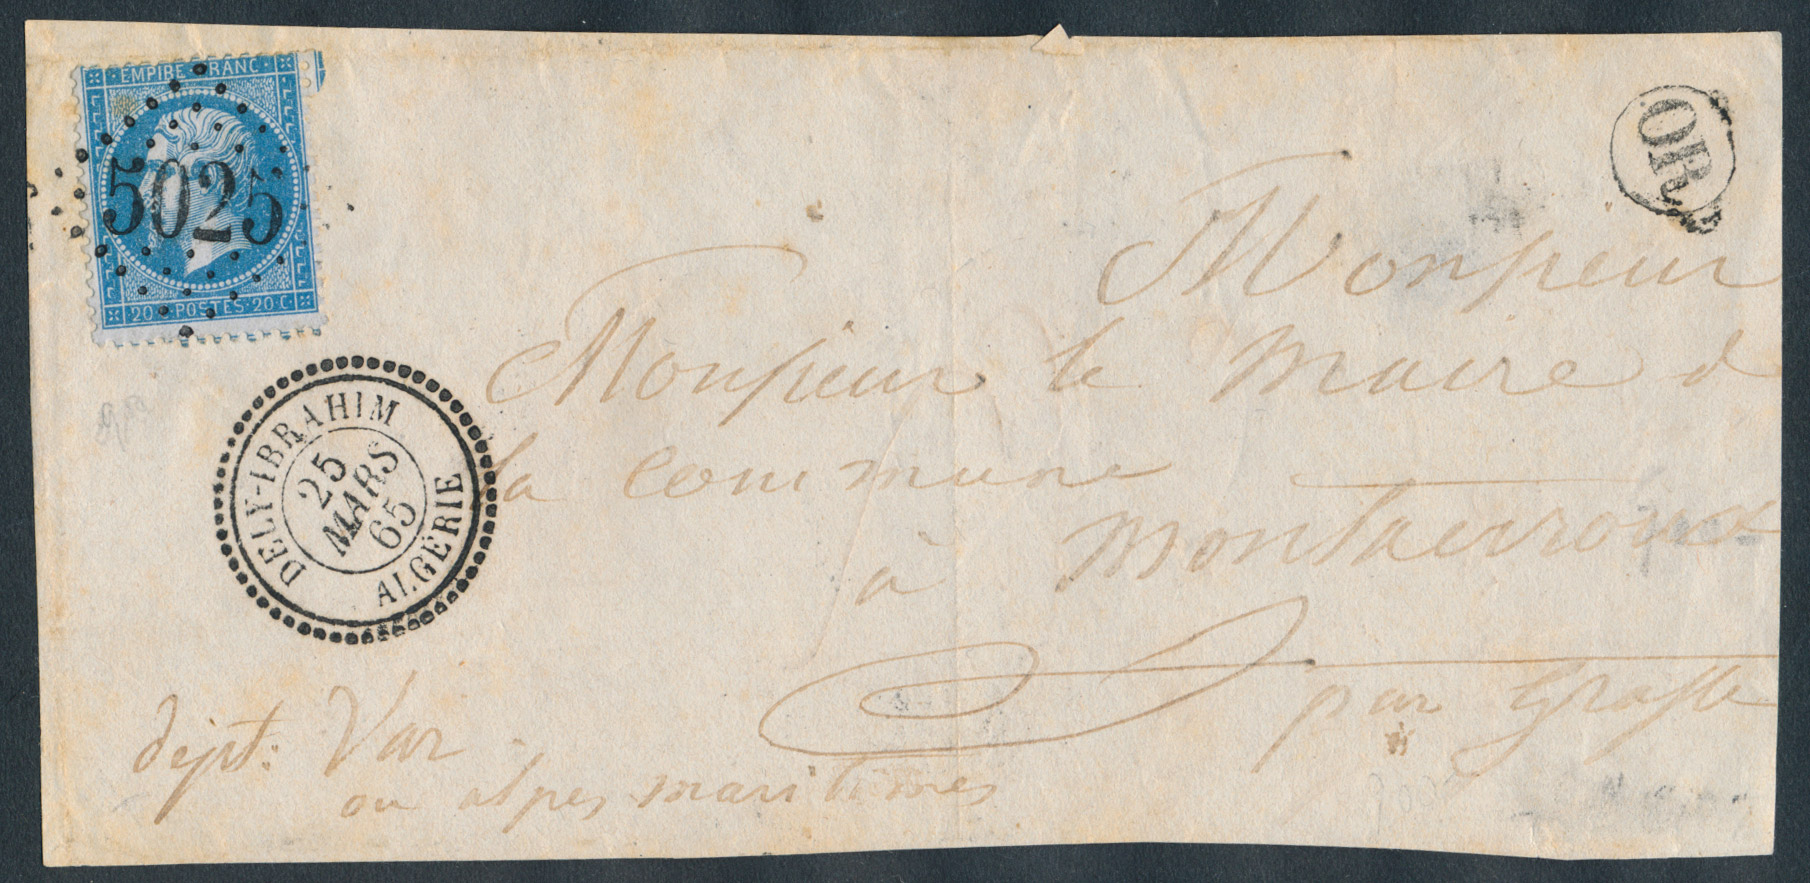 EMPIRE FRANC
5025
20 C POSTES 20 C
OR
DELY-IBRAHIM
25
MARS
65
ALGÉRIE
Monsieur
Monsieur le Maire d
la commune
à Montauroux
par Grasse
dept: Var
ou alpes maritimes